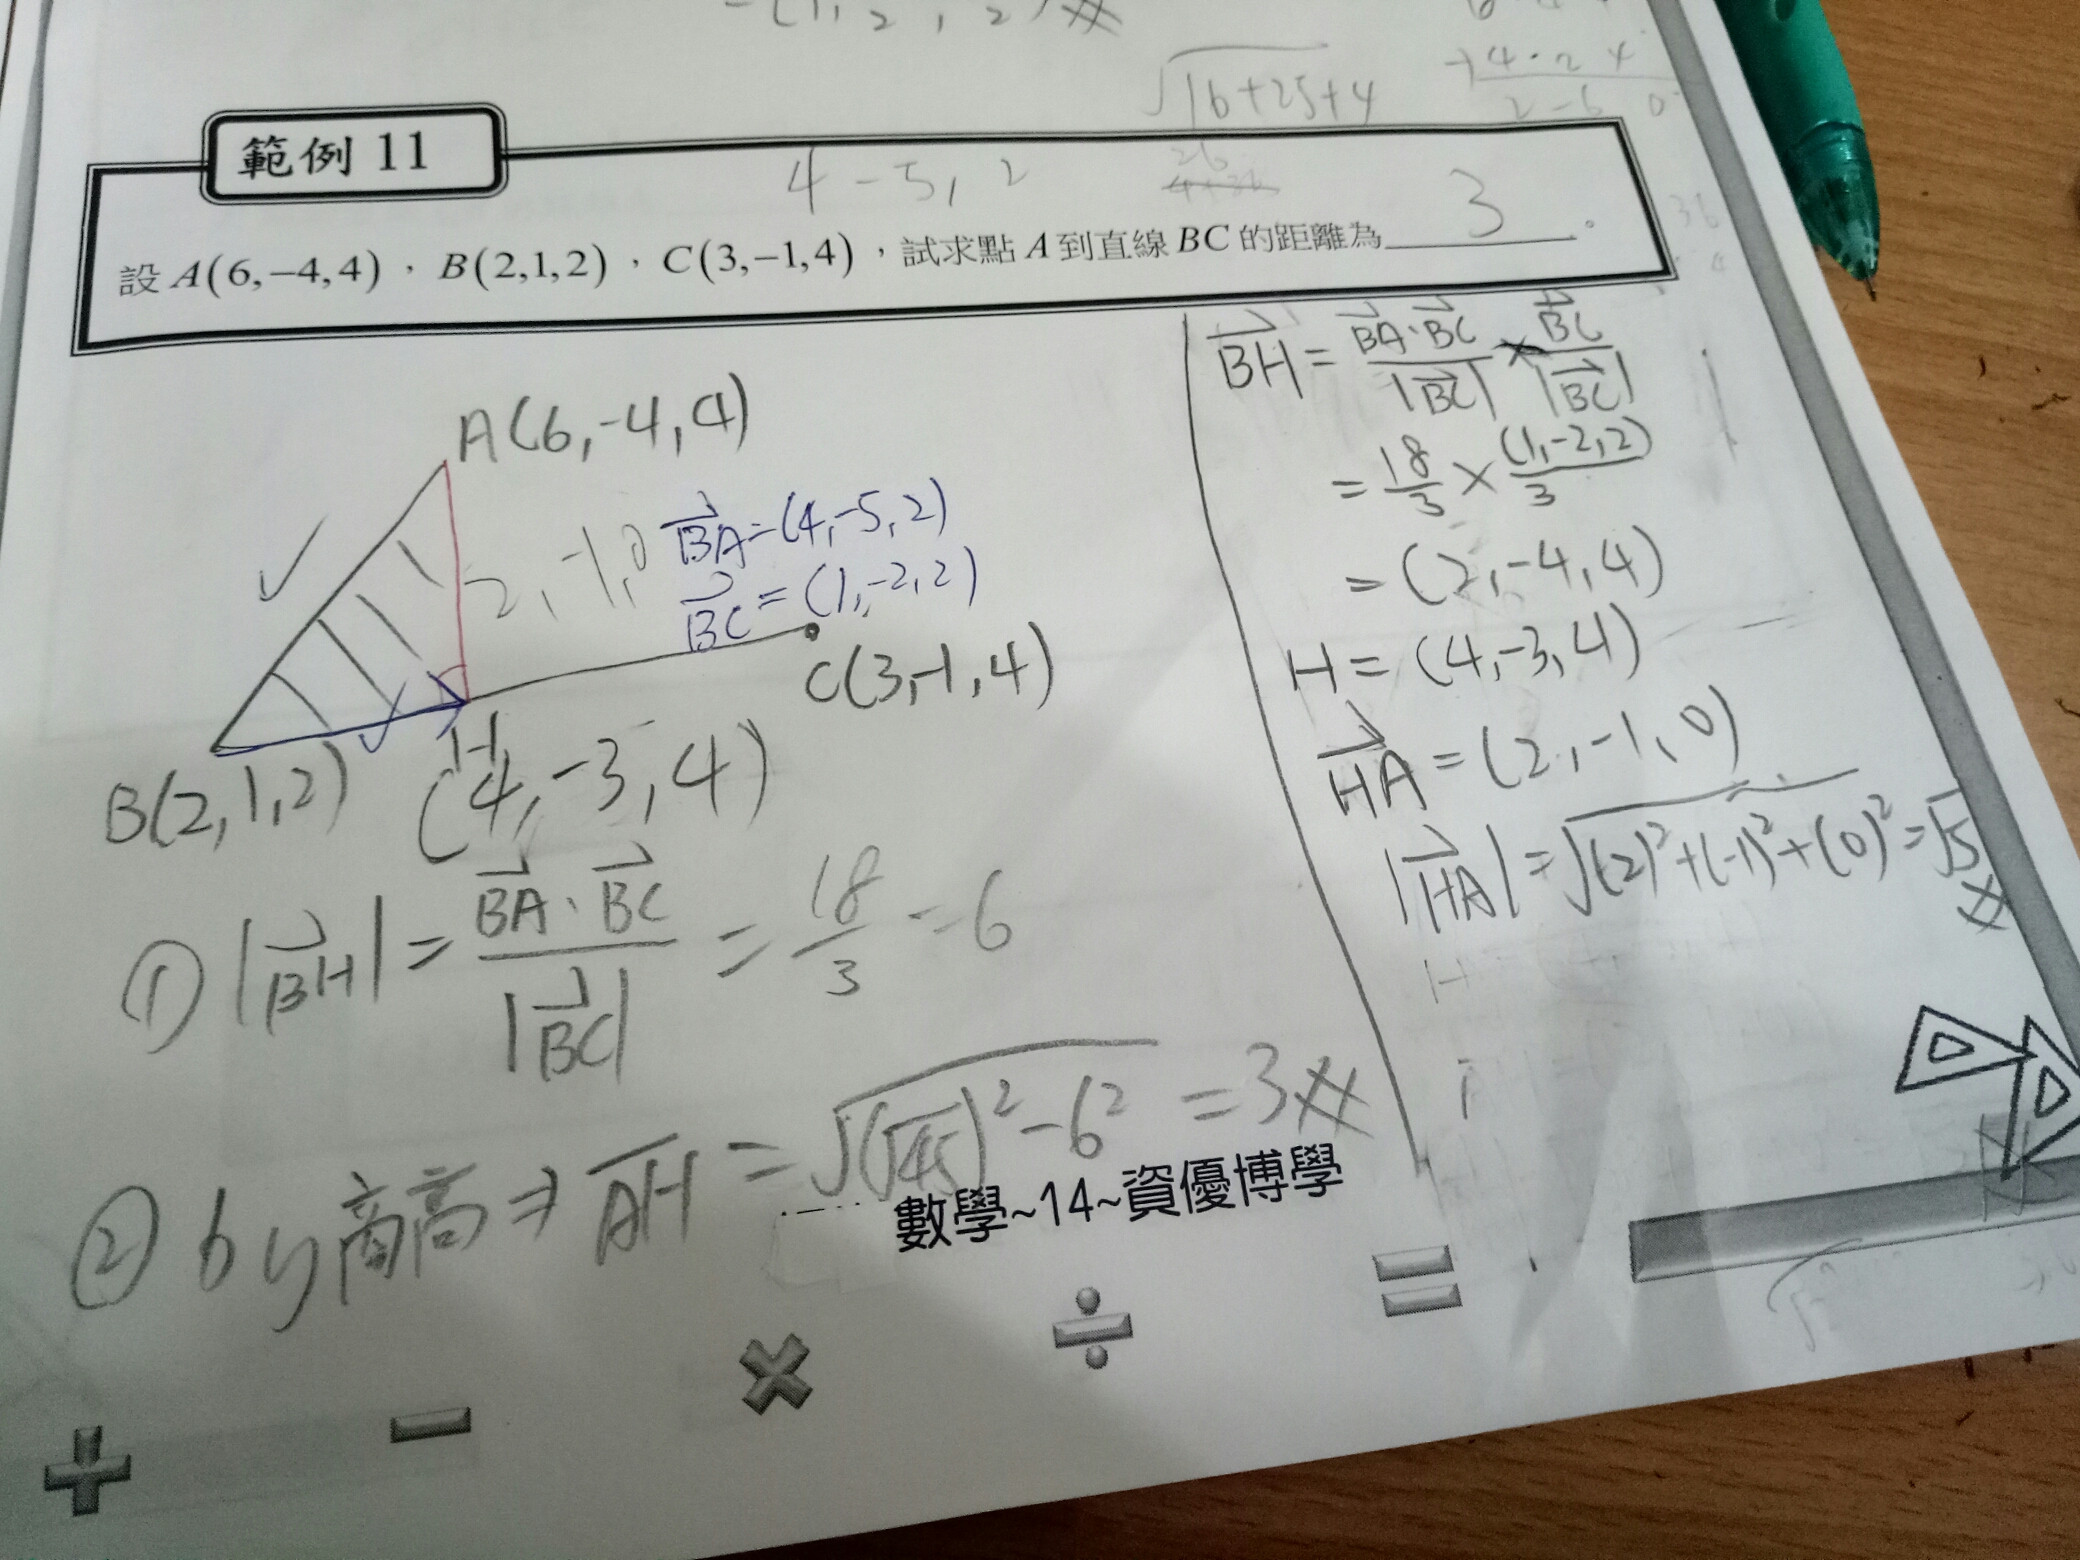 √16+25+4
範例 11
4-5, 2
設 A(6,−4,4)，B(2,1,2)，C(3,−1,4)，試求點 A 到直線 BC 的距離為 3 。
A(6,-4,4)
2, -1, 0
BA=(4,-5,2)
BC=(1,-2,2)
C(3,-1,4)
B(2,1,2)
H
(4,-3,4)
① |BH| = BA·BC / |BC| = 18/3 = 6
② by 商高 ⇒ AH = √(√45)²-6² = 3
BH = BA·BC / |BC| × BC / |BC|
= 18/3 × (1,-2,2)/3
= (2,-4,4)
H = (4,-3,4)
HA = (2,-1,0)
|HA| = √(2)²+(-1)²+(0)² = √5
數學~14~資優博學
+ − × ÷ =